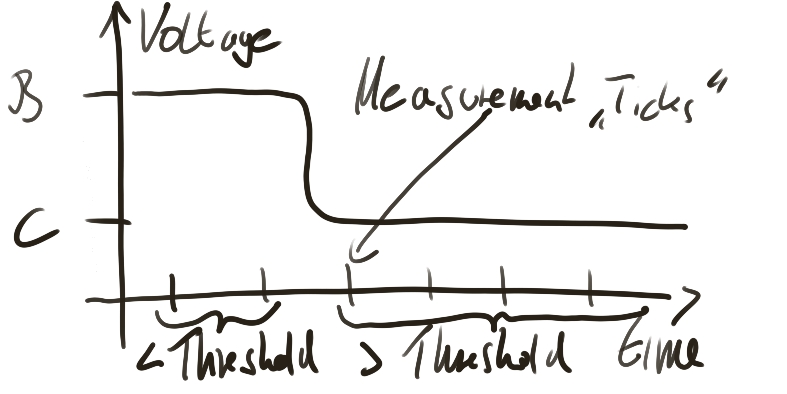 Voltage
B
Measurement „Ticks“
C
< Threshold
> Threshold
time